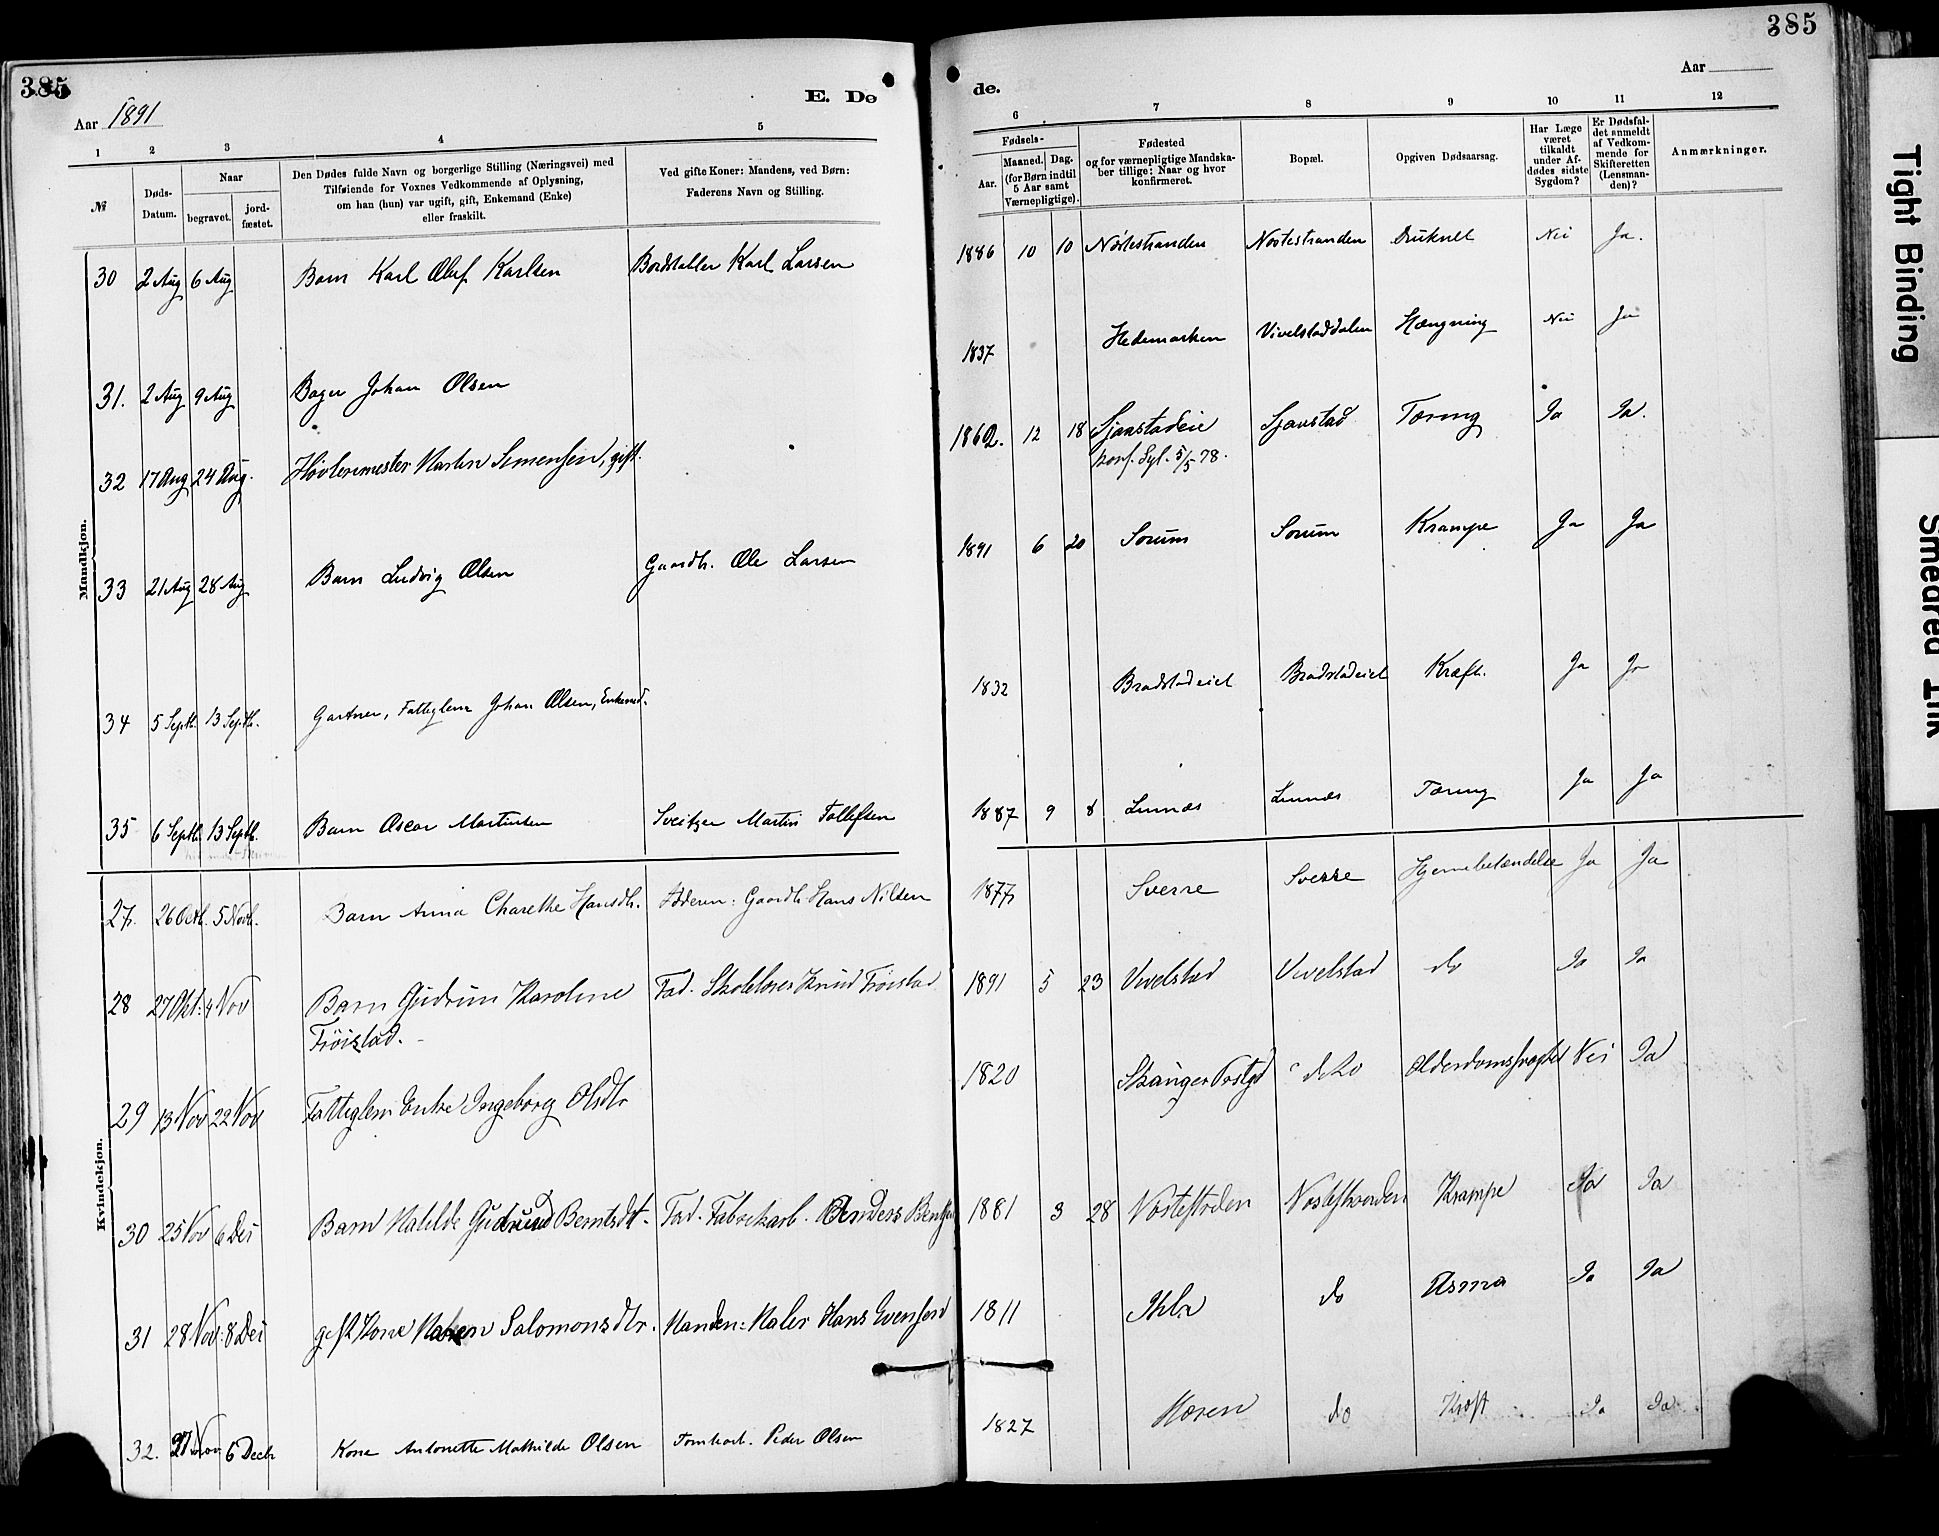 385
Aar 1891
E. Dø
1 2 3 4 5
№
Døds-
Datum.
Naar
begravet.
jord-
fæstet.
Den Dødes fulde Navn og borgerlige Stilling (Næringsvei) med
Tilføiende for Voxnes Vedkommende af Oplysning,
om han (hun) var ugift, gift, Enkemand (Enke)
eller fraskilt.
Ved gifte Koner: Mandens, ved Børn:
Faderens Navn og Stilling.
Mandkjøn.
30 2 Aug 6 Aug Barn Karl Oluf Karlsen Bordstabler Karl Larsen
31. 2 Aug 9 Aug Bager Johan Olsen
32 17 Aug 24 Aug. Høvlermester Martin Simensen, gift.
33 21 Aug 28 Aug Barn Ludvig Olsen Gaardb. Ole Larsen
34 5 Septb. 13 Septb. Gartner, Fattiglem Johan Olsen, Enkemd.
35 6 Septb. 13 Septb. Barn Oscar Martinsen Sveitzer Martin Tollefsen
Kvindekjøn.
27. 26 Octb. 5 Novb. Barn Anna Charethe Hansdt. Faderen: Gaardb Hans Nilsen
28 27 Okt: 4 Nov Barn Gudrun Karoline Fad. Skolelærer Knud Frøistad
Frøistad.
29 13 Nov 22 Nov Fattiglem Enke Ingeborg Olsdtr
30 25 Nov 6 Des Barn Matilde Gudrund Berntsdt. Fad. Fabrikarb. Anders Bentsen
31 28 Nov: 8 Des gift Kone Maren Salomonsdtr. Manden: Maler Hans Evensen
32. 27 Nov 6 Decbr Kone Antonette Mathilde Olsen Tomtearb. Peder Olsen
de.
Aar
385
6 7 8 9 10 11 12
Fødsels-
Aar.
Maaned. Dag.
(for Børn indtil
5 Aar samt
Værnepligtige).
Fødested
og for værnepligtige Mandska-
ber tillige: Naar og hvor
konfirmeret.
Bopæl.
Opgiven Dødsaarsag.
Har Læge
været
tilkaldt
under Af-
dødes sidste
Sygdom?
Er Dødsfal-
det anmeldt
af Vedkom-
mende for
Skifteretten
(Lensman-
den)?
Anmærkninger.
1886 10 10 Nøstestranden Nøstestranden Druknet Nei Ja.
1837 Hedemarken Vivelstaddalen Hængning Nei Ja
1862. 12 18 Sjaastadeie Sjaastad Tæring Ja Ja.
konf. Syl. 5/5 78.
1891 6 20 Sørum Sørum Krampe Ja Ja
1832 Bradstadeiet Bradstadeiet Kræft. Ja Ja
1887 9 8 Linnæs Linnæs Tæring Ja Ja
1877 Sverre Sverre Hjernebetændelse Ja Ja
1891 5 23 Vivelstad Vivelstad do Ja Ja
1820 Stanger Prstgd do Alderdomssvaghet Nei Ja
1881 3 28 Nøstestrden Nøstestranden Krampe Ja Ja
1811 do Asma Ja Ja
1827 Høren do Kræft Ja Ja
Tight Binding
Smeared Ink